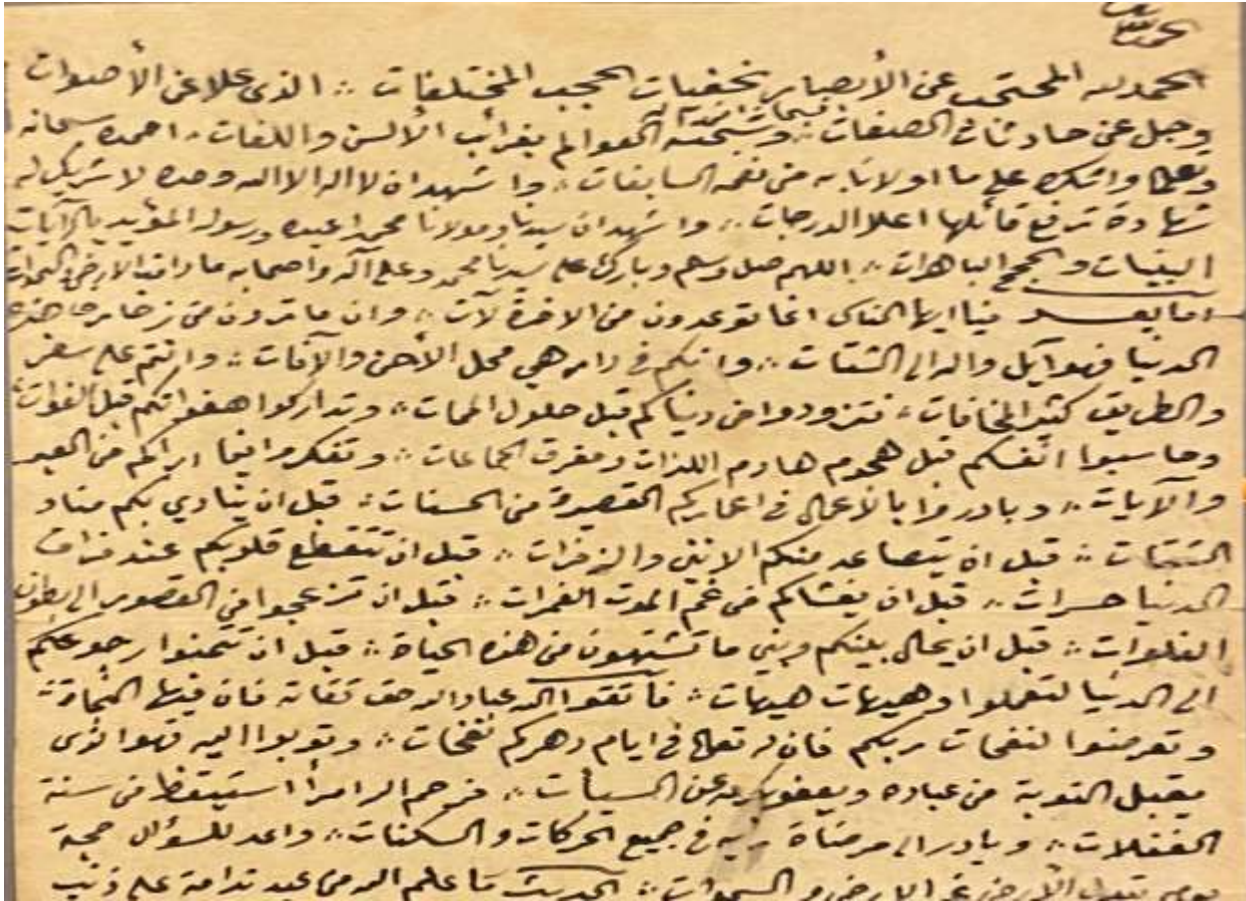 الحمد لله
الحمد لله المحتجب عن الأبصار بخفيات الحجب المختلفات ؞ الذى علا عن الأصوات
وجل عن حادثات الصفات ؞ وسبحته العوالم بغرائب الألسن واللغات ؞ احمده سبحانه
وتعالى واشكره على ما اولانا به من نعمه السابغات ؞ واشهد ان لا اله الا الله وحده لا شريك له
شهادة ترفع قائلها اعلا الدرجات ؞ واشهد ان سيدنا ومولانا محمدا عبده ورسوله المؤيد بالآيات
البينات والحجج الباهرات ؞ اللهم صل وسلم وبارك على سيدنا محمد وعلى آله واصحابه ما دامت الارض والسموات
اما بعد فيا ايها الناس انما توعدون من الاخرة لآت ؞ وان ما ترون من زخارف هذه
الدنيا فهو آيل والله الى الشتات ؞ وانكم فى دار هي محل الأحن والآفات ؞ وانتم على سفر
والطريق كثير المخافات ؞ فتزودوا من دنياكم قبل حلول الممات ؞ وتداركوا هفواتكم قبل الفوات ؞
وحاسبوا انفسكم قبل هجوم هادم اللذات ومفرق الجماعات ؞ وتفكروا فيما اراكم من العبر
والآيات ؞ وبادروا بالاعمال فى اعماركم القصيرة من الحسنات ؞ قبل ان ينادي بكم مناد
الشتات ؞ قبل ان يتصاعد منكم الانين والزفرات ؞ قبل ان تتقطع قلوبكم عند فراق
الدنيا حسرات ؞ قبل ان يغشاكم من غم الموت الغمرات ؞ قبل ان تزعجوا من القصور الى بطون
الفلوات ؞ قبل ان يحال بينكم وبين ما تشتهون من هذه الحياة ؞ قبل ان تتمنوا رجوعكم
الى الدنيا لتعملوا وهيهات هيهات ؞ فاتقوا الله عباد الله حق تقاته فان فيها النجاة ؞
وتعرضوا لنفحات ربكم فان له تعالى فى ايام دهركم نفحات ؞ وتوبوا اليه فهو الذى
يقبل التوبة من عباده ويعفو بكرمه عن السيئات ؞ فرحم الله امرأ استيقظ من سنة
الغفلات ؞ وبادر الى مرضاة ربه فى جميع الحركات والسكنات ؞ واعد للسؤال حجة
يوم تبدل الأرض غير الارض والسموات ؞ الحديث ما علم الله من عبد ندامة على ذنب